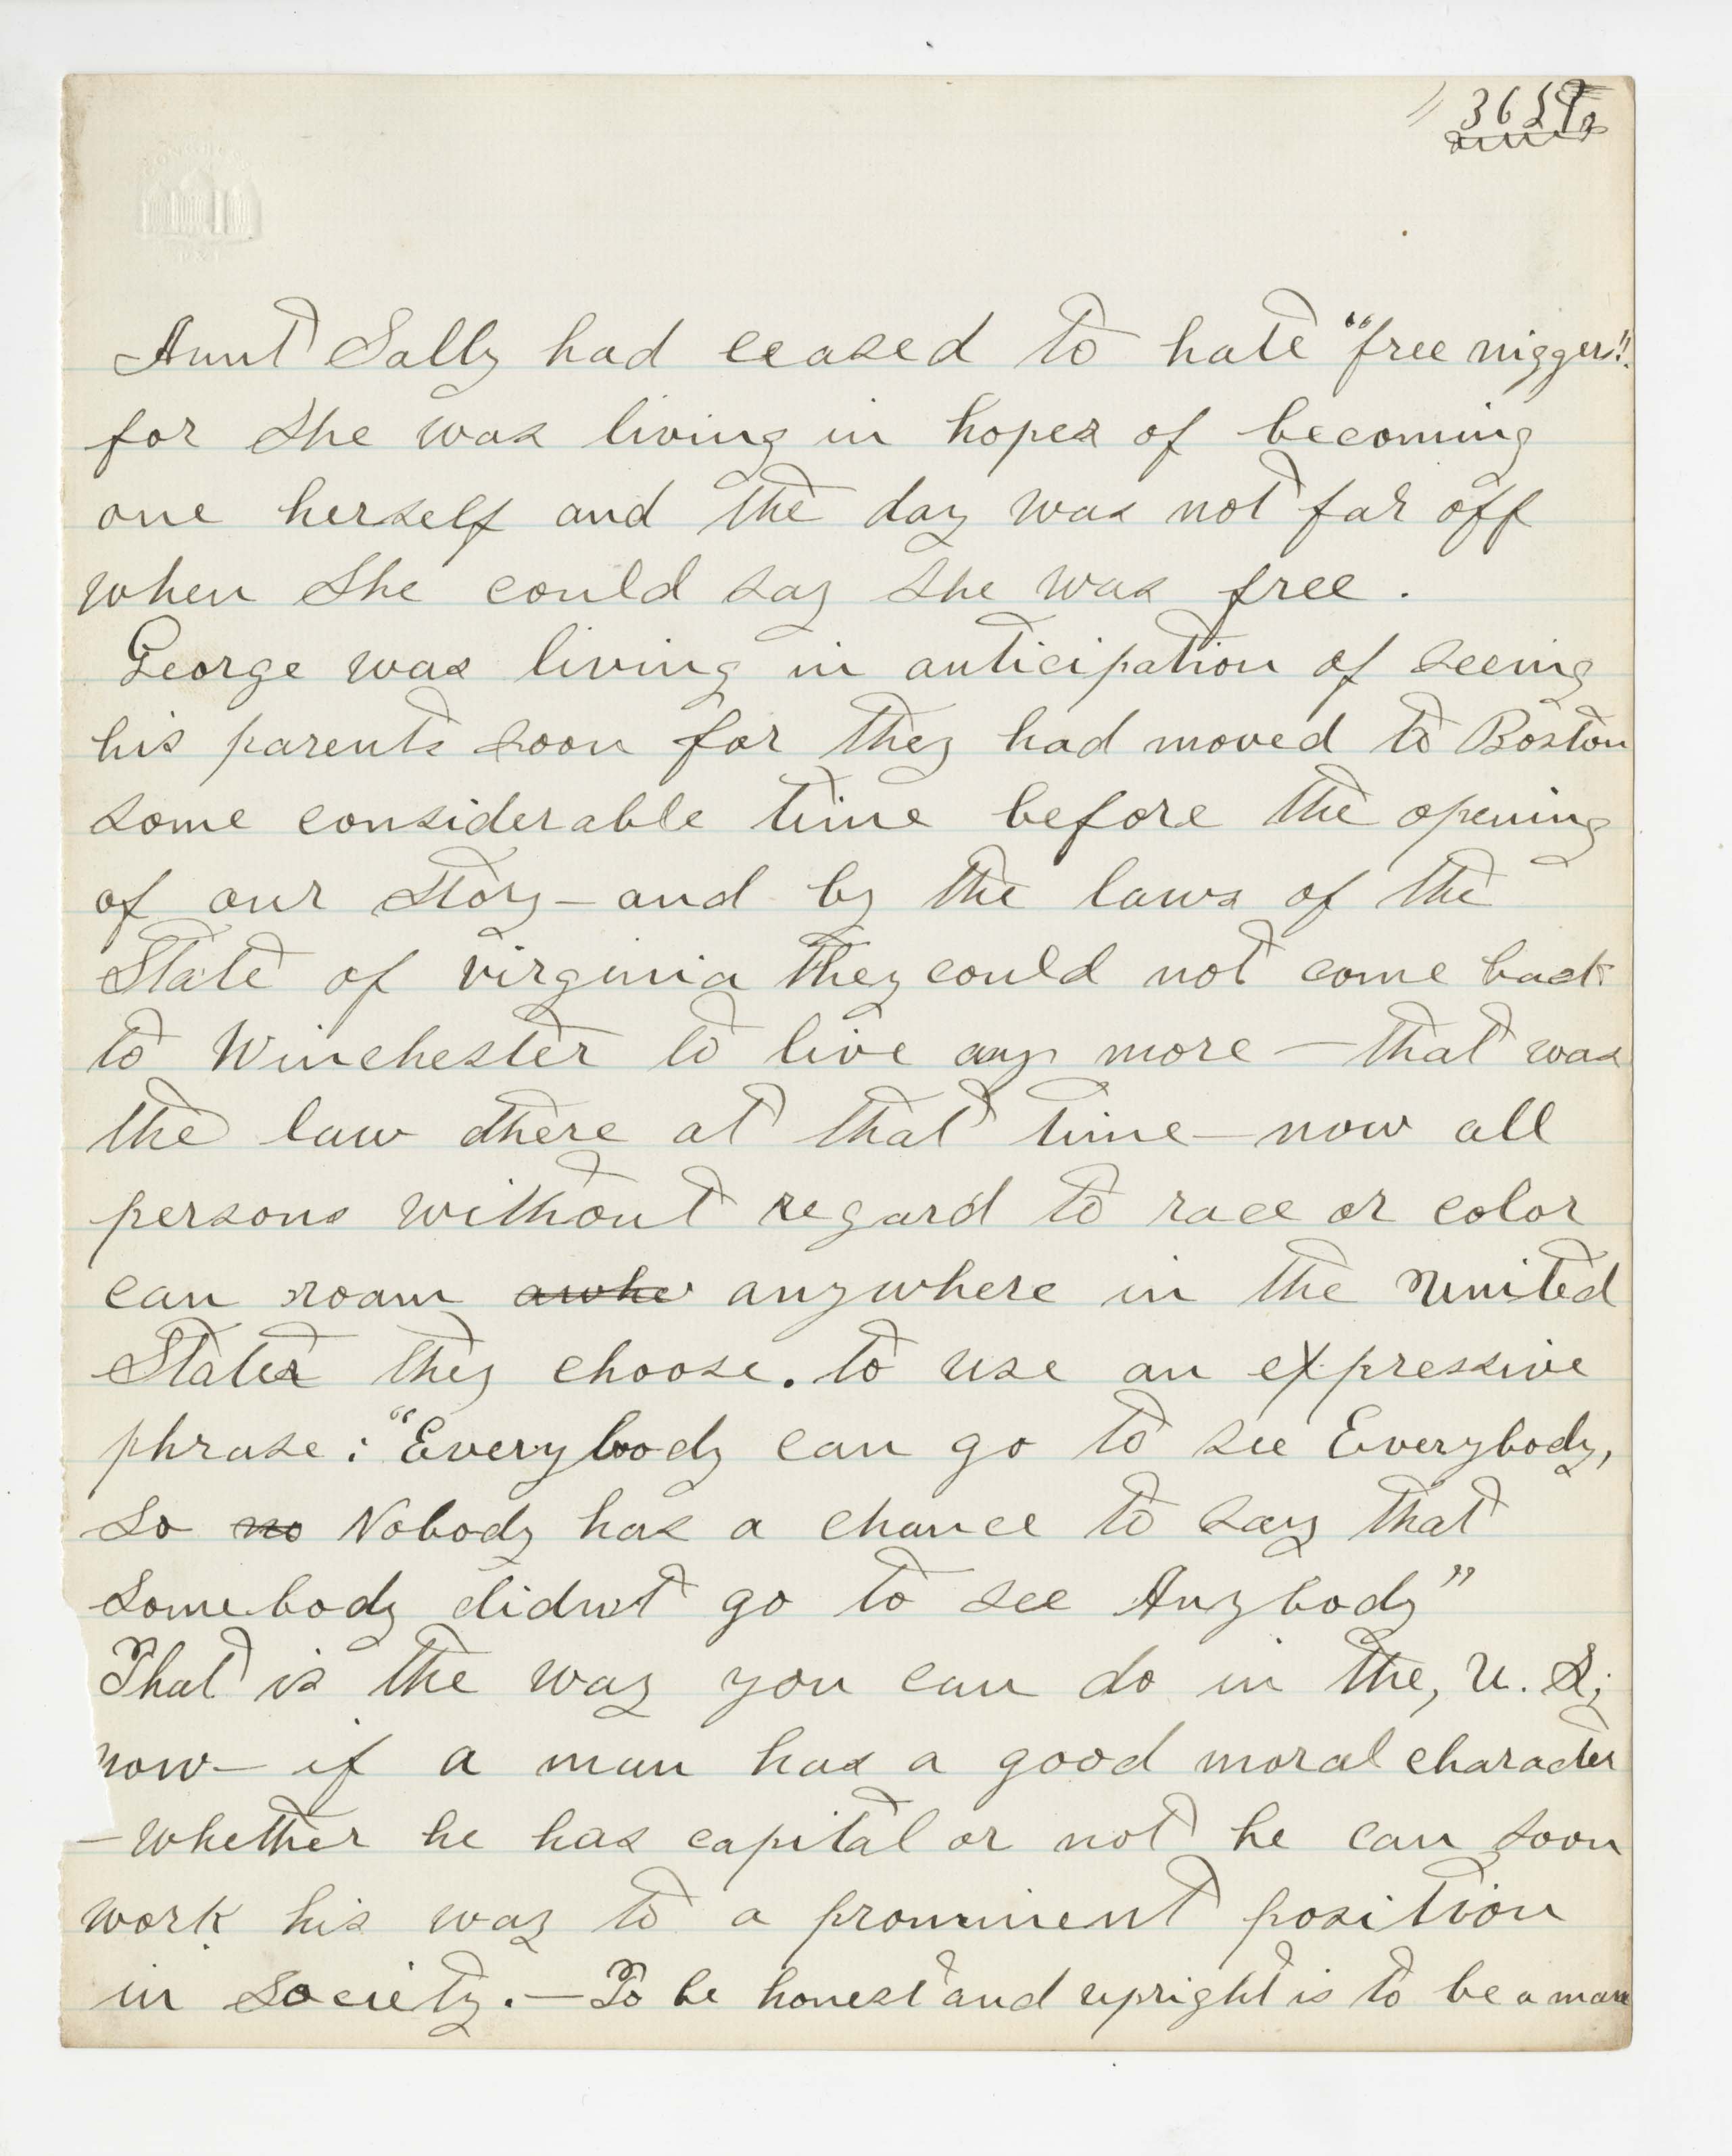 Aunt Sally had ceased to hate "free niggers".
for she was living in hopes of becoming
one herself and the day was not far off
when she could say she was free.
George was living in anticipation of seeing
his parents soon for they had moved to Boston
some considerable time before the opening
of our story — and by the laws of the
State of virginia they could not come back
to Winchester to live any more — that was
the law there at that time — now all
persons without regard to race or color
can roam awhe anywhere in the United
States they choose. to use an expressive
phrase: "Everybody can go to see Everybody,
so no Nobody has a chance to say that
somebody didnt go to see Anybody"
That is the way you can do in the, U. S;
now — if a man has a good moral character
— whether he has capital or not he can soon
work his way to a prominent position
in society. — To be honest and upright is to be a man